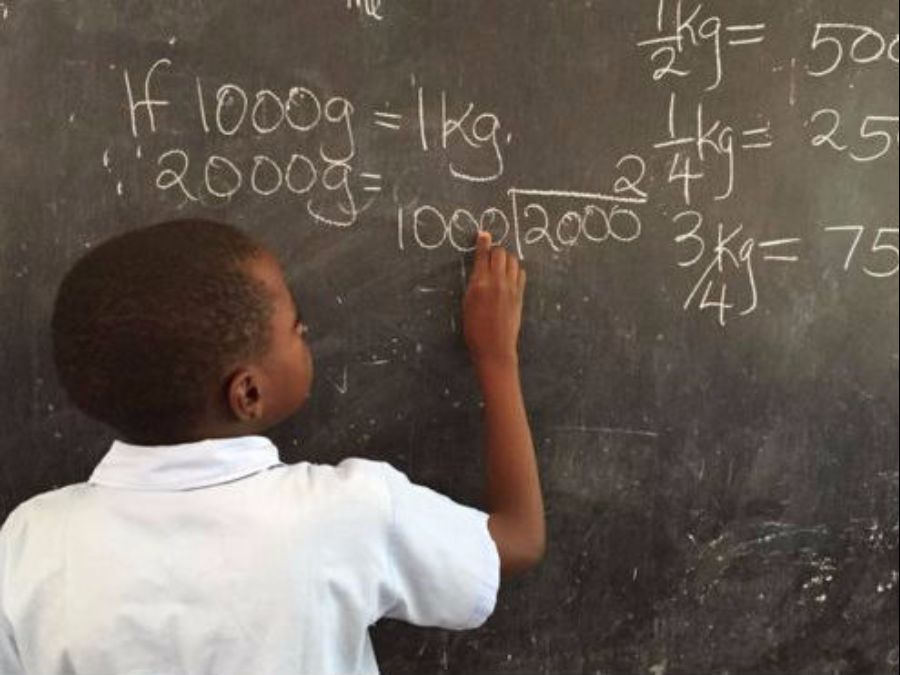 If 1000g = 1kg.
2000g =
2
1000 2000
1/2 kg = 500
1/4 kg = 25
3/4 kg = 75